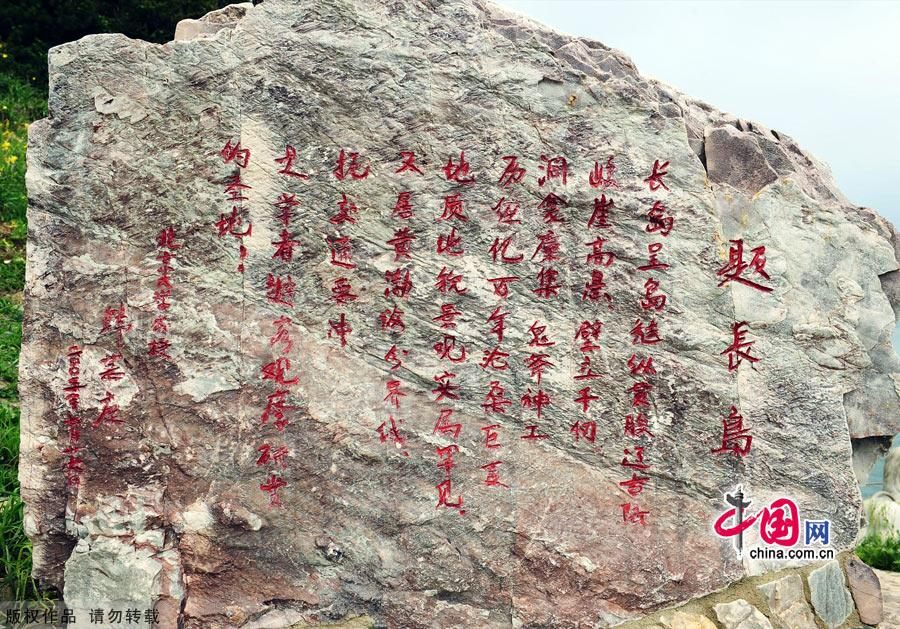 题長島
长岛呈岛链纵贯胶辽古陆
崖高悬壁立千仞
洞龛麇集 鬼斧神工
历亿百年沧桑巨变
地质地貌景观实属罕见
又居黄渤海分界线
扼通要冲
学者游客观摩研赏
的圣地
北京大学教授
韩慕康
中国网
china.com.cn
版权作品 请勿转载